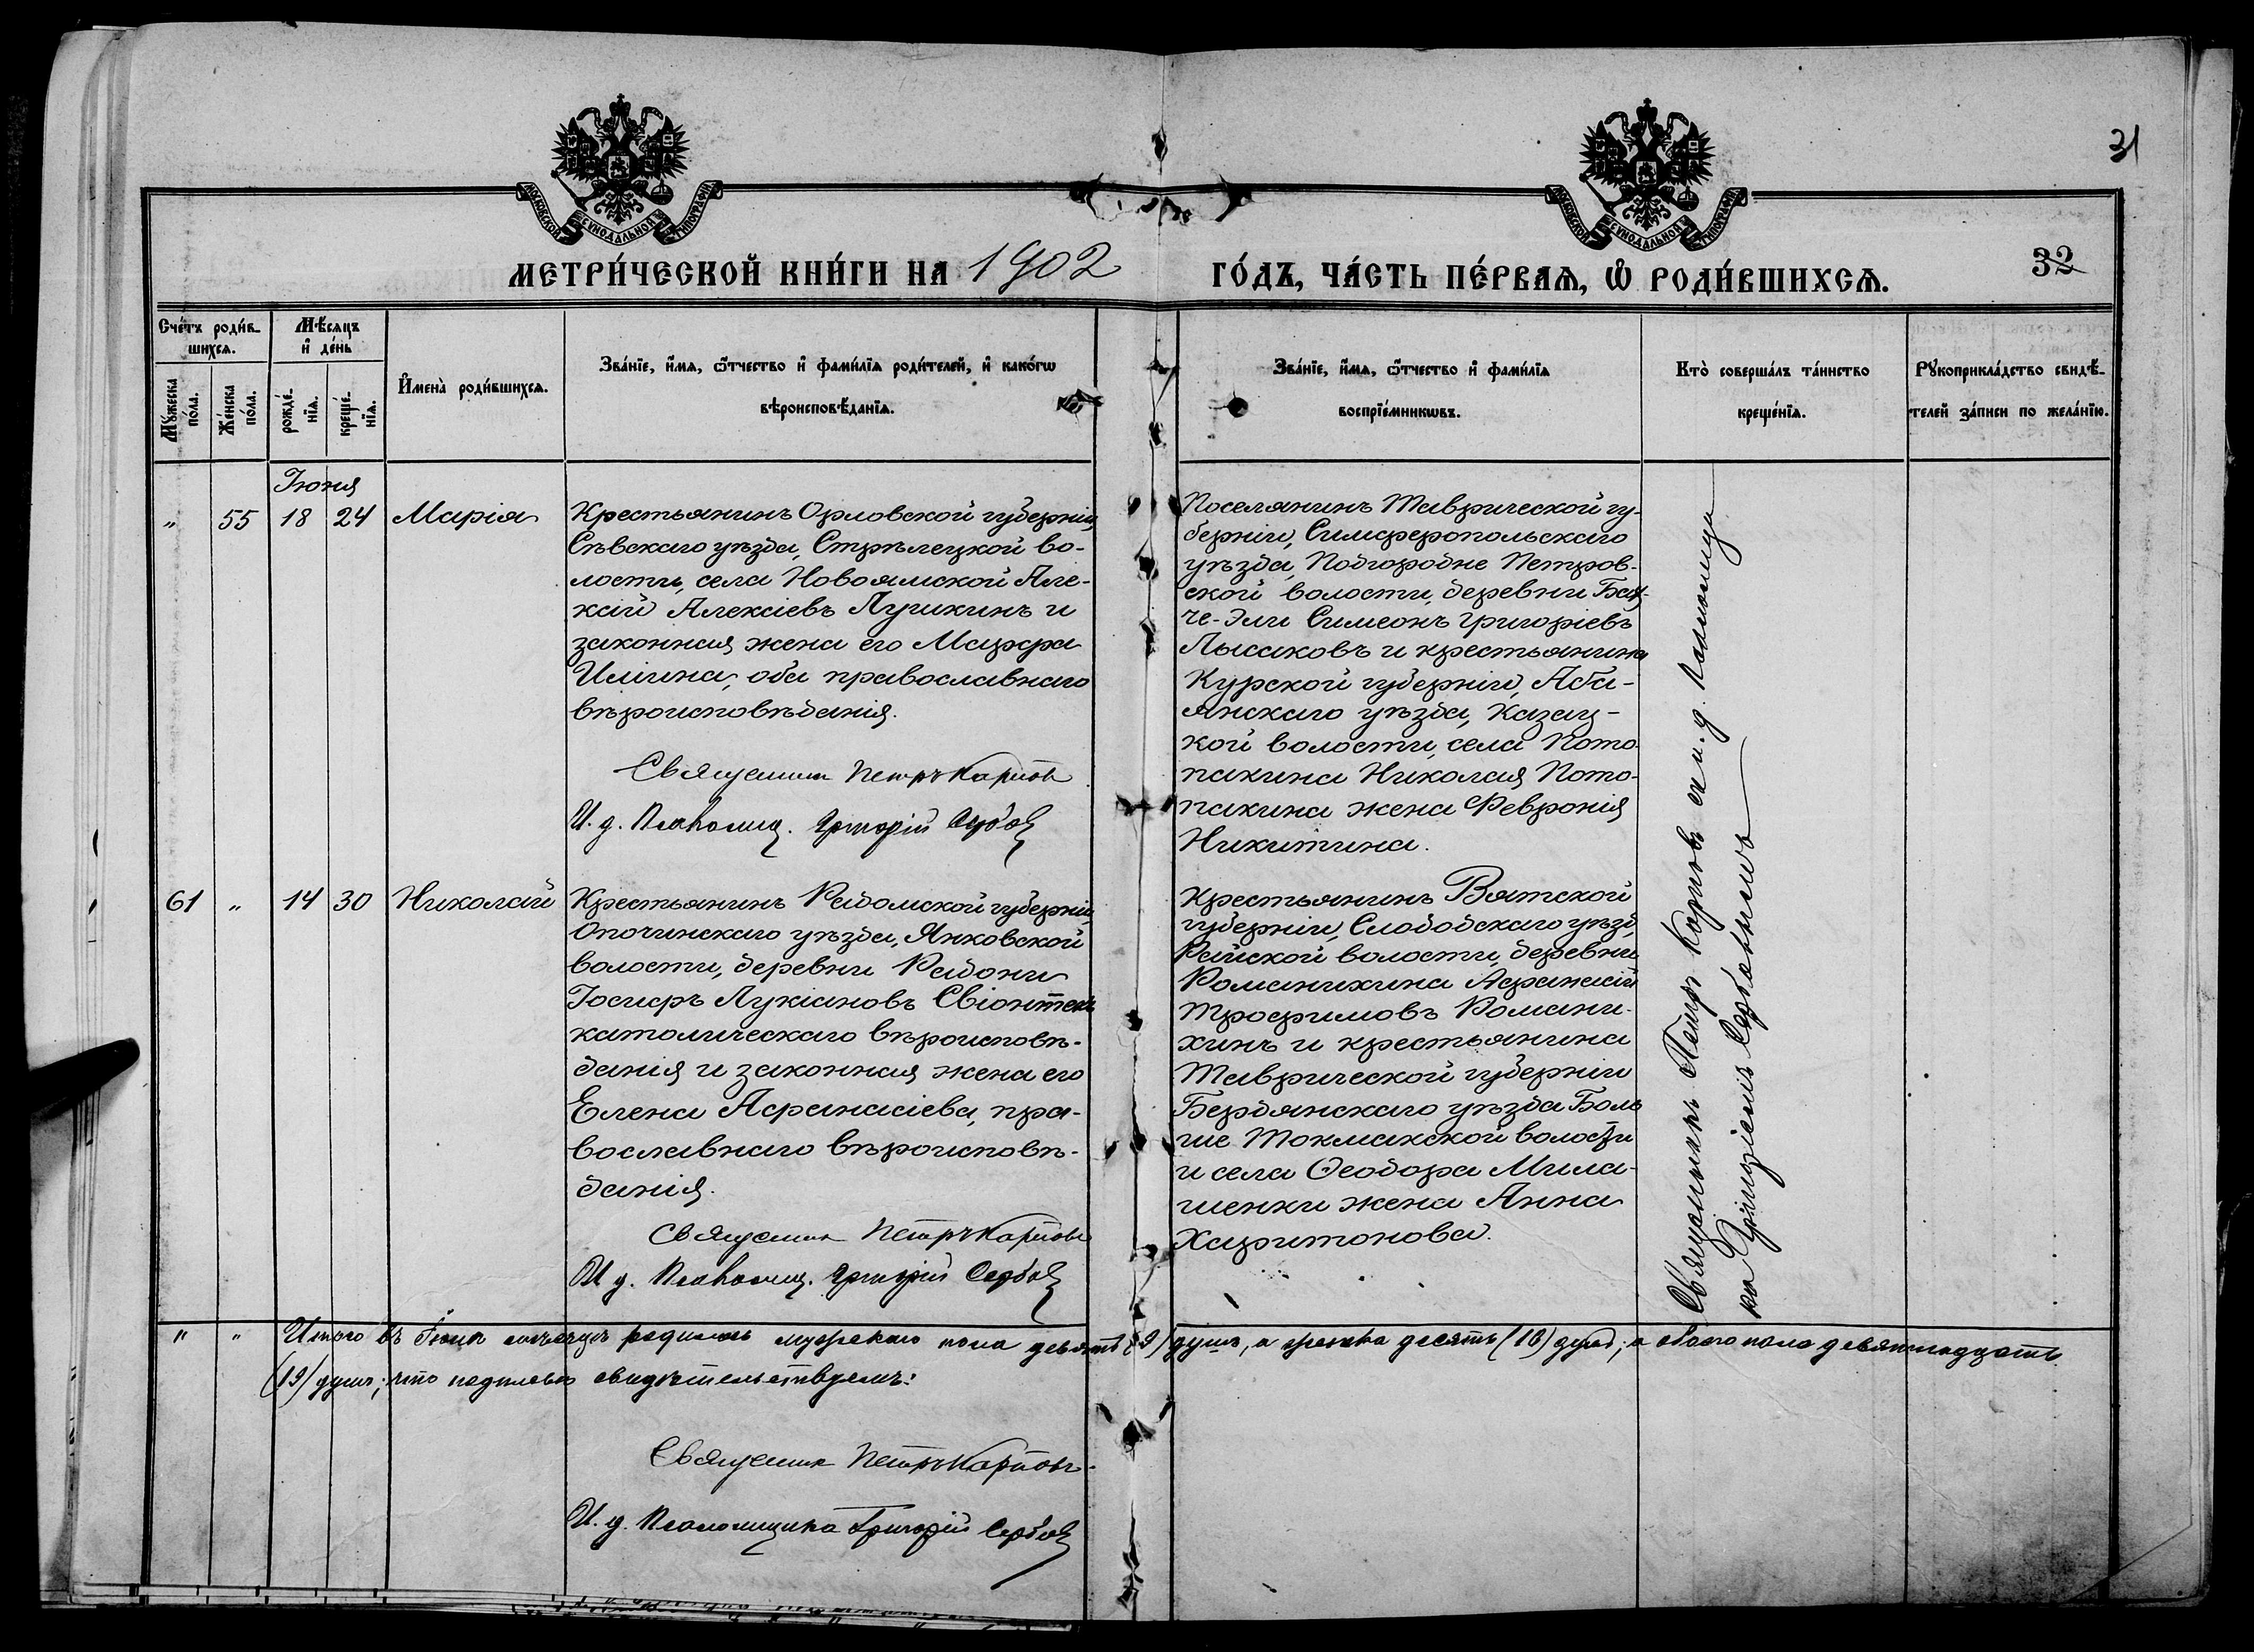 31
МОСКОВСКОЙ СУНОДАЛЬНОЙ ТИПОГРАФІИ
МОСКОВСКОЙ СУНОДАЛЬНОЙ ТИПОГРАФІИ
МЕТРИ́ЧЕСКОЙ КНИ́ГИ НА 1902 ГО́ДЪ, ЧА́СТЬ ПЕ́РВАѦ, Ѡ҆ РОДИ́ВШИХСѦ.
32
Сче́тъ роди́в-
шихсѧ.
Мꙋ́жеска по́ла.
Же́нска по́ла.
Мѣ́сѧцъ
и҆ де́нь
рожде́-
нїѧ.
креще́-
нїѧ.
И҆мена̀ роди́вшихсѧ.
Зва́нїе, и҆́мѧ, ѻ҆́тчество и҆ фами́лїѧ роди́телей, и҆ како́гѡ
вѣроисповѣ́данїѧ.
Зва́нїе, и҆́мѧ, ѻ҆́тчество и҆ фами́лїѧ
воспрїе́мникѡвъ.
Кто̀ соверша́лъ та́инство
креще́нїѧ.
Рꙋкоприкла́дство свидѣ́-
телей за́писи по жела́нїю.
Іюня
" 55 18 24 Марія
Крестьянинъ Орловской губерніи,
Сѣвскаго уѣзда, Стрѣлецкой во-
лости, села Новоямской Але-
ксій Алексіевъ Лушкинъ и
законная жена его Марфа
Иліина, оба православнаго
вѣроисповѣданія.
Священник Петръ Карпов
И. д. Псаломщ. Григорій Сербов
Поселянинъ Таврической гу-
берніи, Симферопольскаго
уѣзда, Подгородне Петров-
ской волости, деревни Бах-
че-Эли Симеонъ Григоріевъ
Лысаковъ и крестьянина
Курской губерніи, Аба-
янскаго уѣзда, Казац-
кой волости, села Пото-
пахина Николая Пото-
пахина жена Февронія
Никитина.
61 " 14 30 Николай
Крестьянинъ Радомской губерніи,
Опочинскаго уѣзда, Янковской
волости, деревни Радони
Іосифъ Лукіановъ Свіонтекъ
католическаго вѣроисповѣ-
данія и законная жена его
Елена Аѳанасіева, пра-
вославнаго вѣроисповѣ-
данія.
Священник Петръ Карпов
И д. Псаломщ. Григорій Сербов
Крестьянинъ Вятской
губерніи, Слободскаго уѣзд,
Райской волости, деревни
Романихина Аѳанасій
Трофимовъ Романи-
хинъ и крестьянина
Таврической губерніи
Бердянскаго уѣзда Боль
ше Токмакской волости
и села Ѳеодора Мила-
шенки жена Анна
Харитонова.
Священникъ Петръ Карповъ съ и. д. Псаломщи
ка Григоріемъ Сербовымъ
" " Итого въ Іюнѣ мѣсяцѣ родилось мужскаго пола девять (9) душъ, а женска десять (10) душъ; а обоего пола девятнадцать
(19) душъ; что подписью свидѣтельствуемъ:
Священник Петръ Карповъ
И. д. Псаломщика Григорій Сербов